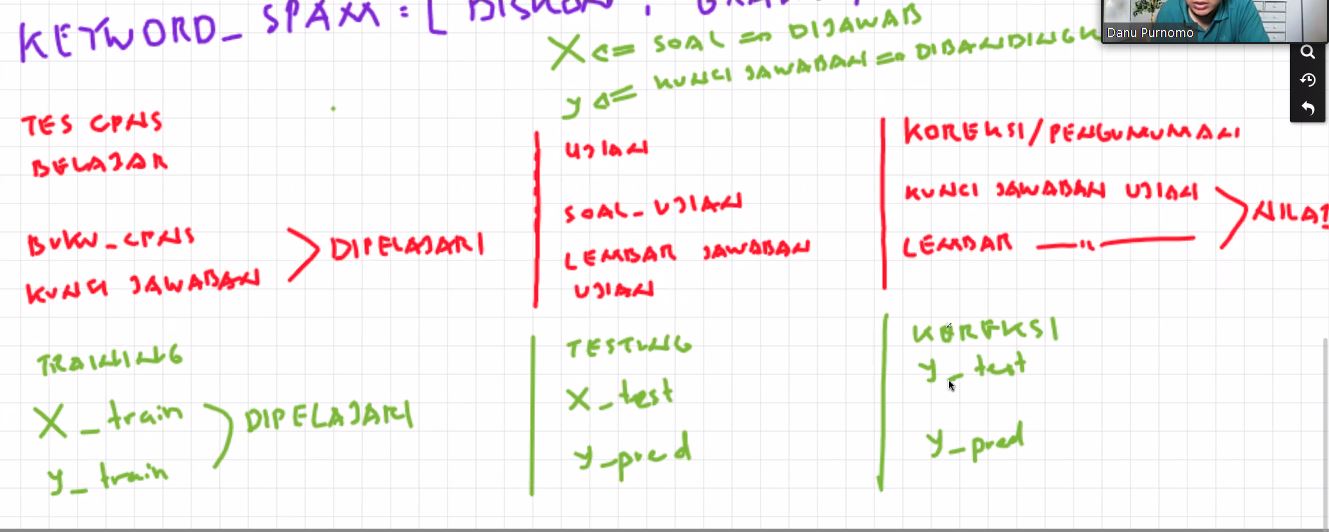 KEYWORD_ SPAM : [ DISKON , GRA
X <= SOAL => DIJAWAB
y <= KUNCI JAWABAN => DIBANDINGK
Danu Purnomo
TES CPNS
BELAJAR
BUKU_CPNS
KUNCI JAWABAN
> DIPELAJARI
UJIAN
SOAL_UJIAN
LEMBAR JAWABAN
UJIAN
KOREKSI/PENGUMUMAN
KUNCI JAWABAN UJIAN
LEMBAR —"—
> NILAI
TRAINING
X_train
y_train
) DIPELAJARI
TESTING
X_test
y_pred
KOREKSI
y_test
y_pred